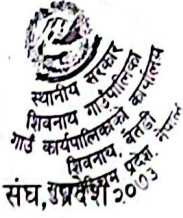 स्थानीय सरकार
शिवनाथ गाउँपालिका
गाउँ कार्यपालिकाको कार्यालय
शिवनाथ, बैतडी
सुदूरपश्चिम प्रदेश, नेपाल
२०७३
संघ,